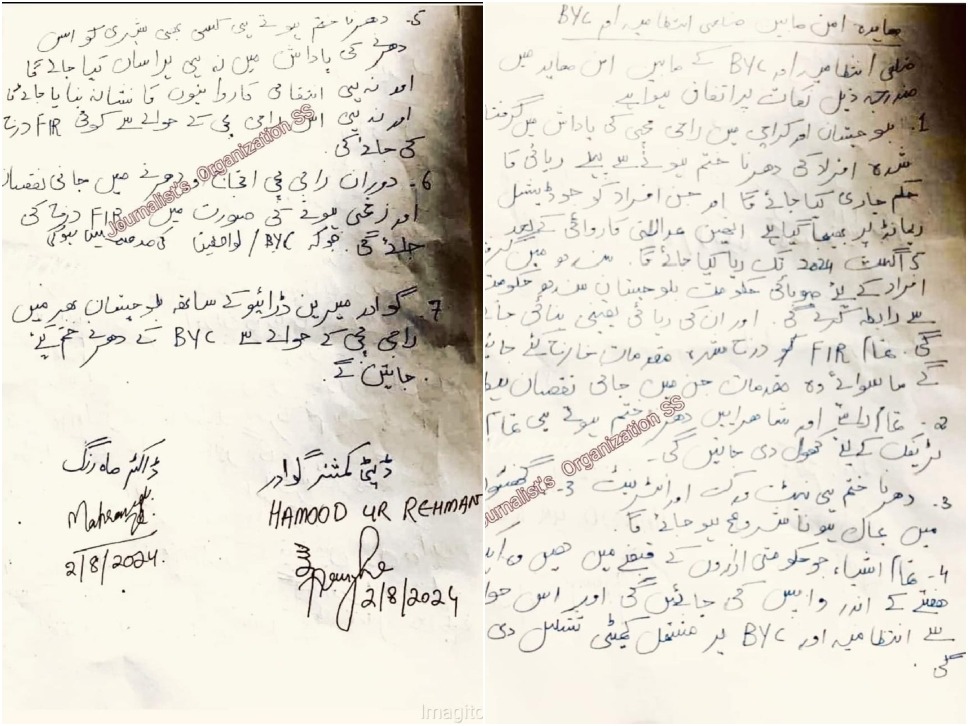 معاہدہ امن مابین ضلعی انتظامیہ اور BYC
ضلعی انتظامیہ اور BYC کے مابین امن معاہدہ میں
مندرجہ ذیل نکات پر اتفاق ہوا ہے
1. بلوچستان اور کراچی میں راجی مچی کی پاداش میں گرفتار
شدہ افراد کی دھرنا ختم ہونے سے پہلے رہائی کا
حکم جاری کیا جائے گا اور جن افراد کو جوڈیشل
ریمانڈ پر بھیجا گیا ہے انہیں عدالتی کاروائی کے بعد
5 اگست 2024 تک رہا کیا جائے گا. سندھ میں گرفتار
افراد کے لئے صوبائی حکومت بلوچستان سندھ حکومت
سے رابطہ کرے گی. اور ان کی رہائی یقینی بنائی جائے
گی. تمام FIR درج شدہ مقدمات خارج کئے جائیں
گے ماسوائے وہ مقدمات جن میں جانی نقصان ہوا
2. تمام راستے اور شاہراہیں دھرنا ختم ہوتے ہی تمام
ٹریفک کے لئے کھول دی جائیں گی.
3. دھرنا ختم ہوتے ہی نیٹ ورک اور انٹرنیٹ 3 گھنٹوں
میں بحال ہونا شروع ہو جائے گا
4. تمام اشیاء جو حکومتی اداروں کے قبضے میں ہیں وہ ایک
ہفتے کے اندر واپس کی جائیں گی اور اس حوالے
سے انتظامیہ اور BYC پر مشتمل کمیٹی تشکیل دی
گی.
Journalist's Organization SS
5. دھرنا ختم ہوتے ہی کسی بھی شہری کو اس
دھرنے کی پاداش میں نہ ہی ہراساں کیا جائے گا
اور نہ ہی انتقامی کاروائیوں کا نشانہ بنایا جائے گا
اور نہ ہی اس راجی مچی کے حوالے سے کوئی FIR درج
کی جائے گی.
6. دوران راجی مچی اجتماع و دھرنے میں جانی نقصان
اور زخمی ہونے کی صورت میں FIR درج کی
جائے گی. جو کہ BYC / لواحقین کی مدعیت میں ہوگی
7. گوادر میرین ڈرائیو کے ساتھ بلوچستان بھر میں
راجی مچی کے حوالے سے BYC کے دھرنے ختم کئے
جائیں گے.
ڈاکٹر ماہ رنگ
Mahrang
2/8/2024.
ڈپٹی کمشنر گوادر
HAMOOD UR REHMAN
2/8/2024
Journalist's Organization SS
Imagitor